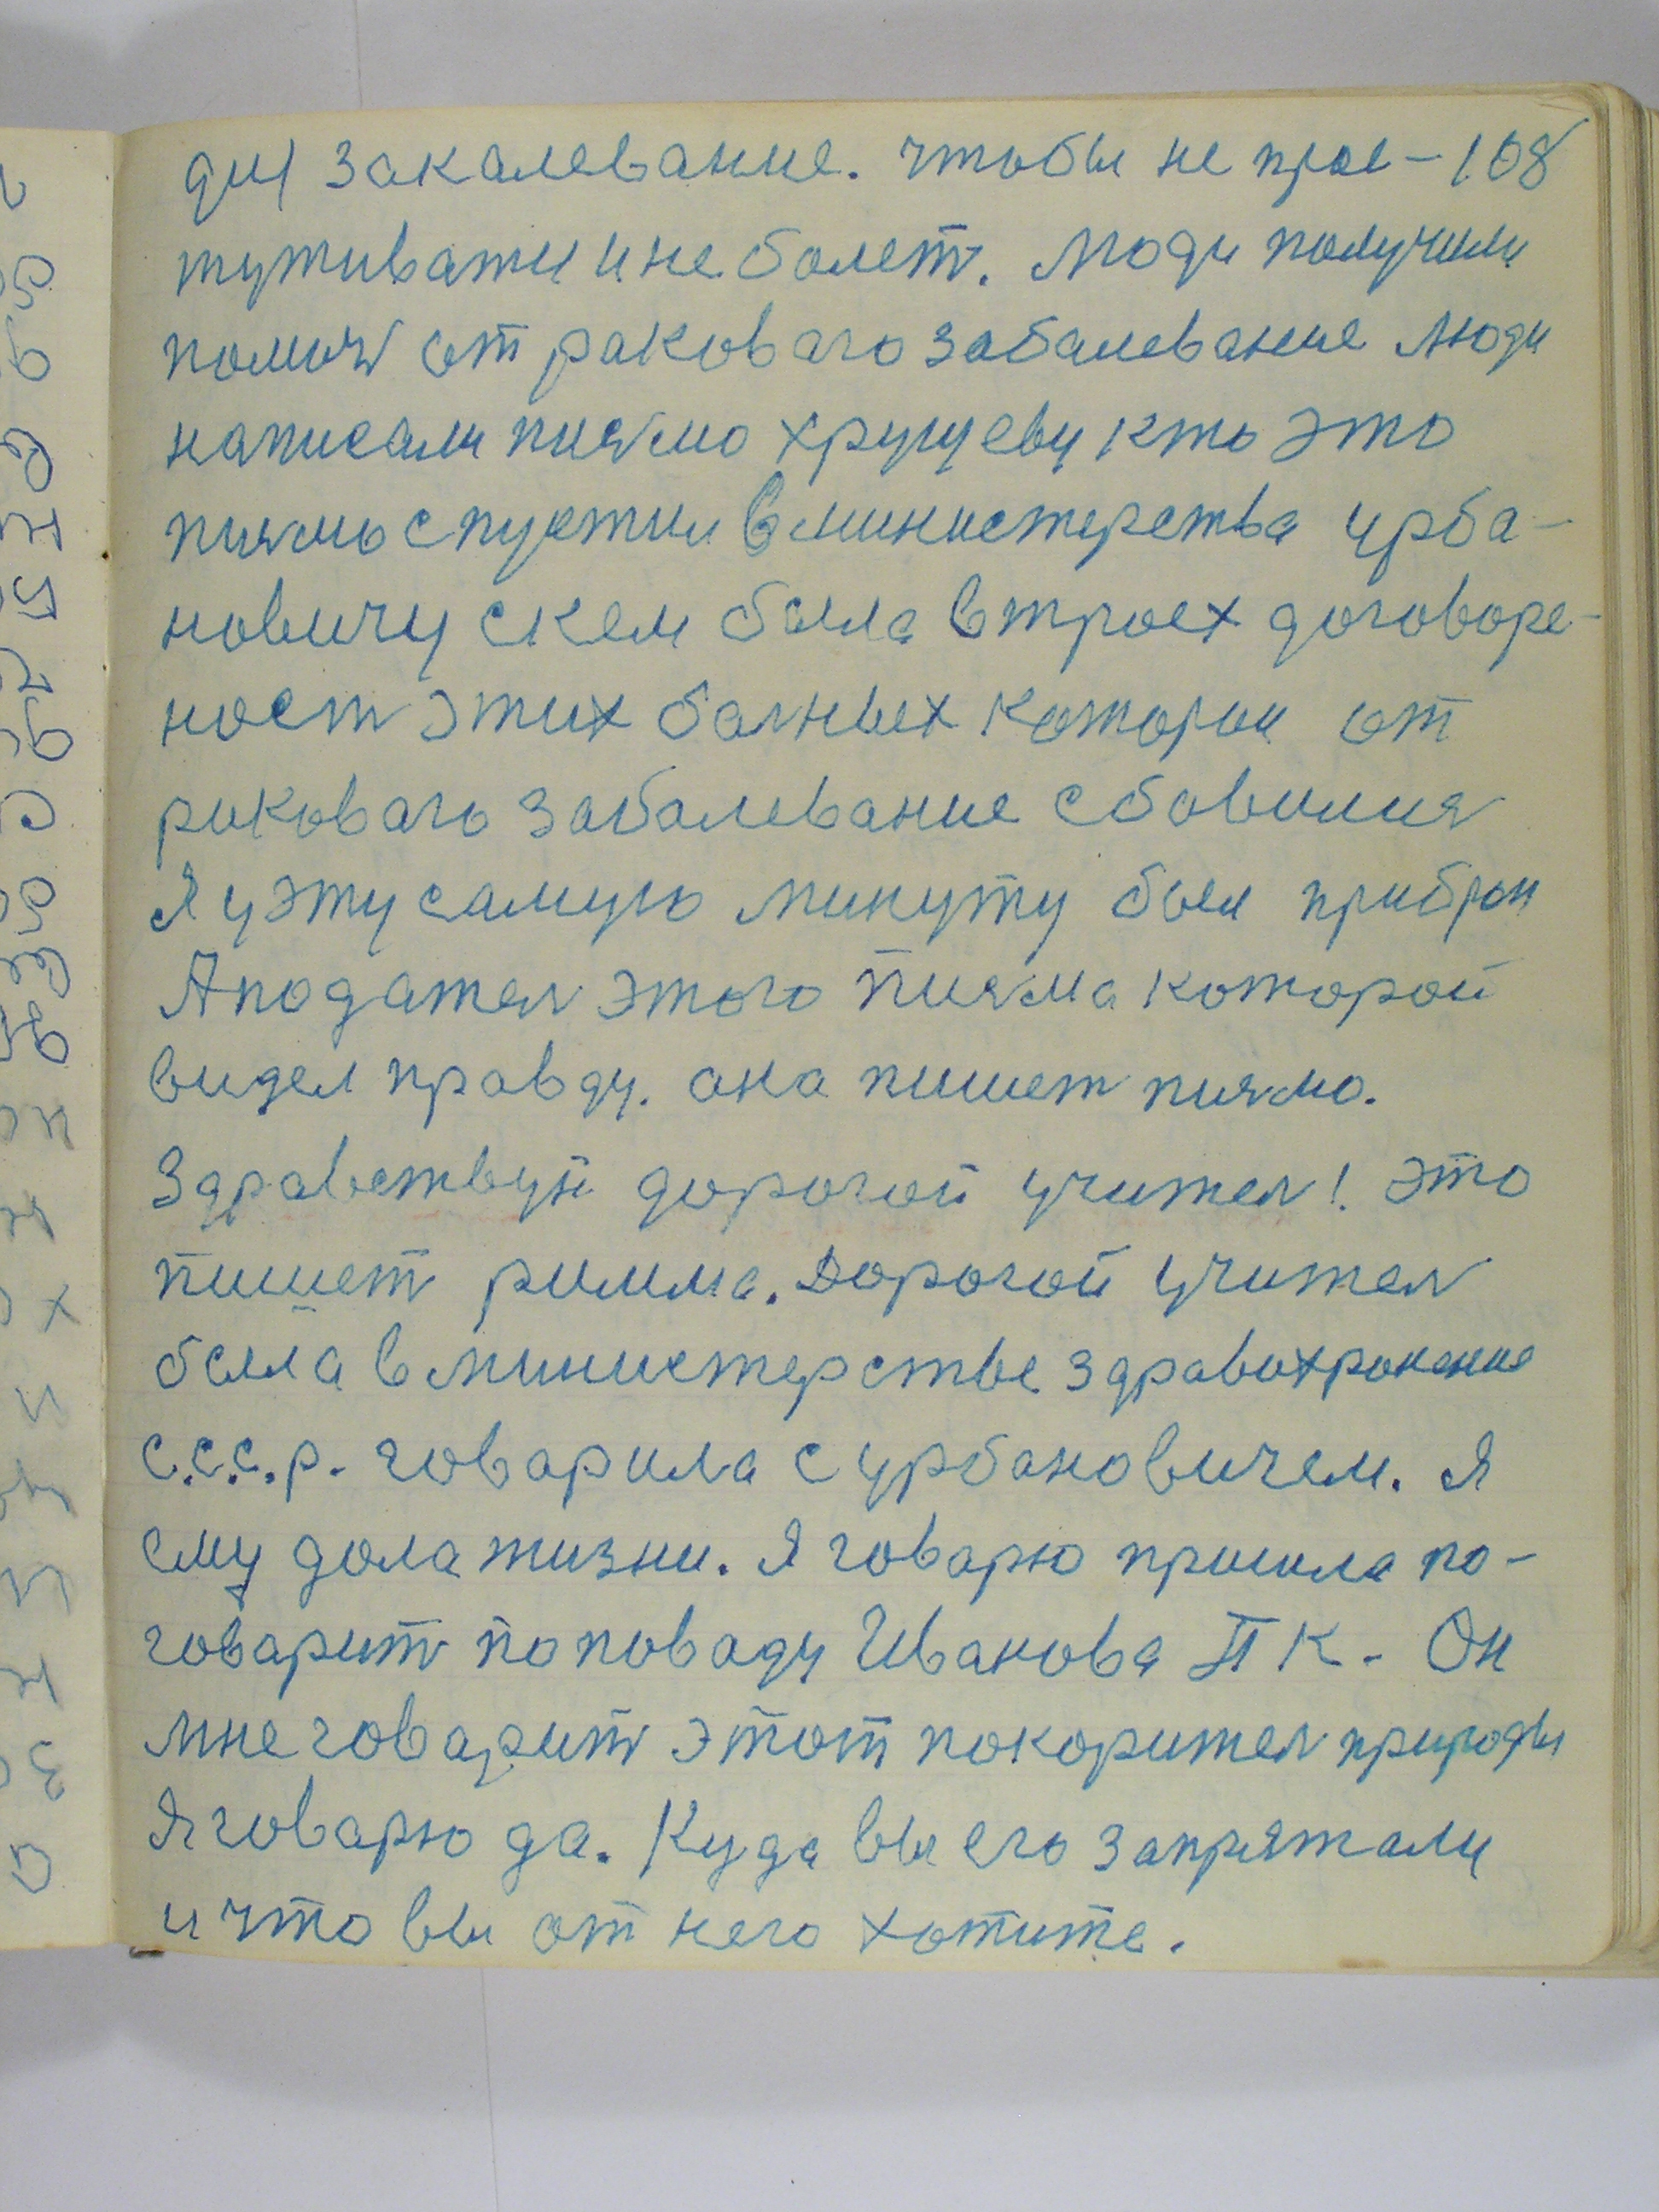 дця закалевание. чтобы не прос- 108
туживати и не болеть. Люди получили
помоч от раковаго забалевание люди
написали писмо хрущеву кто это
писмо спустил в министерства урба-
новичу скем была втроех договоре-
ност этих балных которои от
раковаго забалевание сбавилис
Я у эту самую минуту был прибран
А податель этого писма которой
видел правду. она пишет писмо.
Здравствуй дорогой учител! это
пишет римма. Дорогой учител
была в министерстве здравохронение
С.С.С.Р. говарила с урбановичем. Я
ему дола жизни. Я говарю пришла по-
говарит по поваду Иванова П К. Он
мне говарит этот покорител природы
Я говарю да. Куда вы его запрятали
и что вы от него хотите.